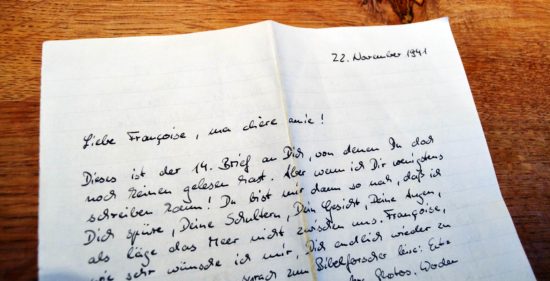 22. November 1941
Liebe Françoise, ma chère amie!
Dieses ist der 14. Brief an Dich, von denen Du doch
noch keinen gelesen hast. Aber wenn ich Dir wenigstens
schreiben kann! Du bist mir dann so nah, daß ich
Dich spüre, Deine Schultern, Dein Gesicht, Deine Augen,
als läge das Meer nicht zwischen uns. Françoise,
wie sehr wünsche ich mir, Dich endlich wieder zu
zum Bibelforscher
Photos.